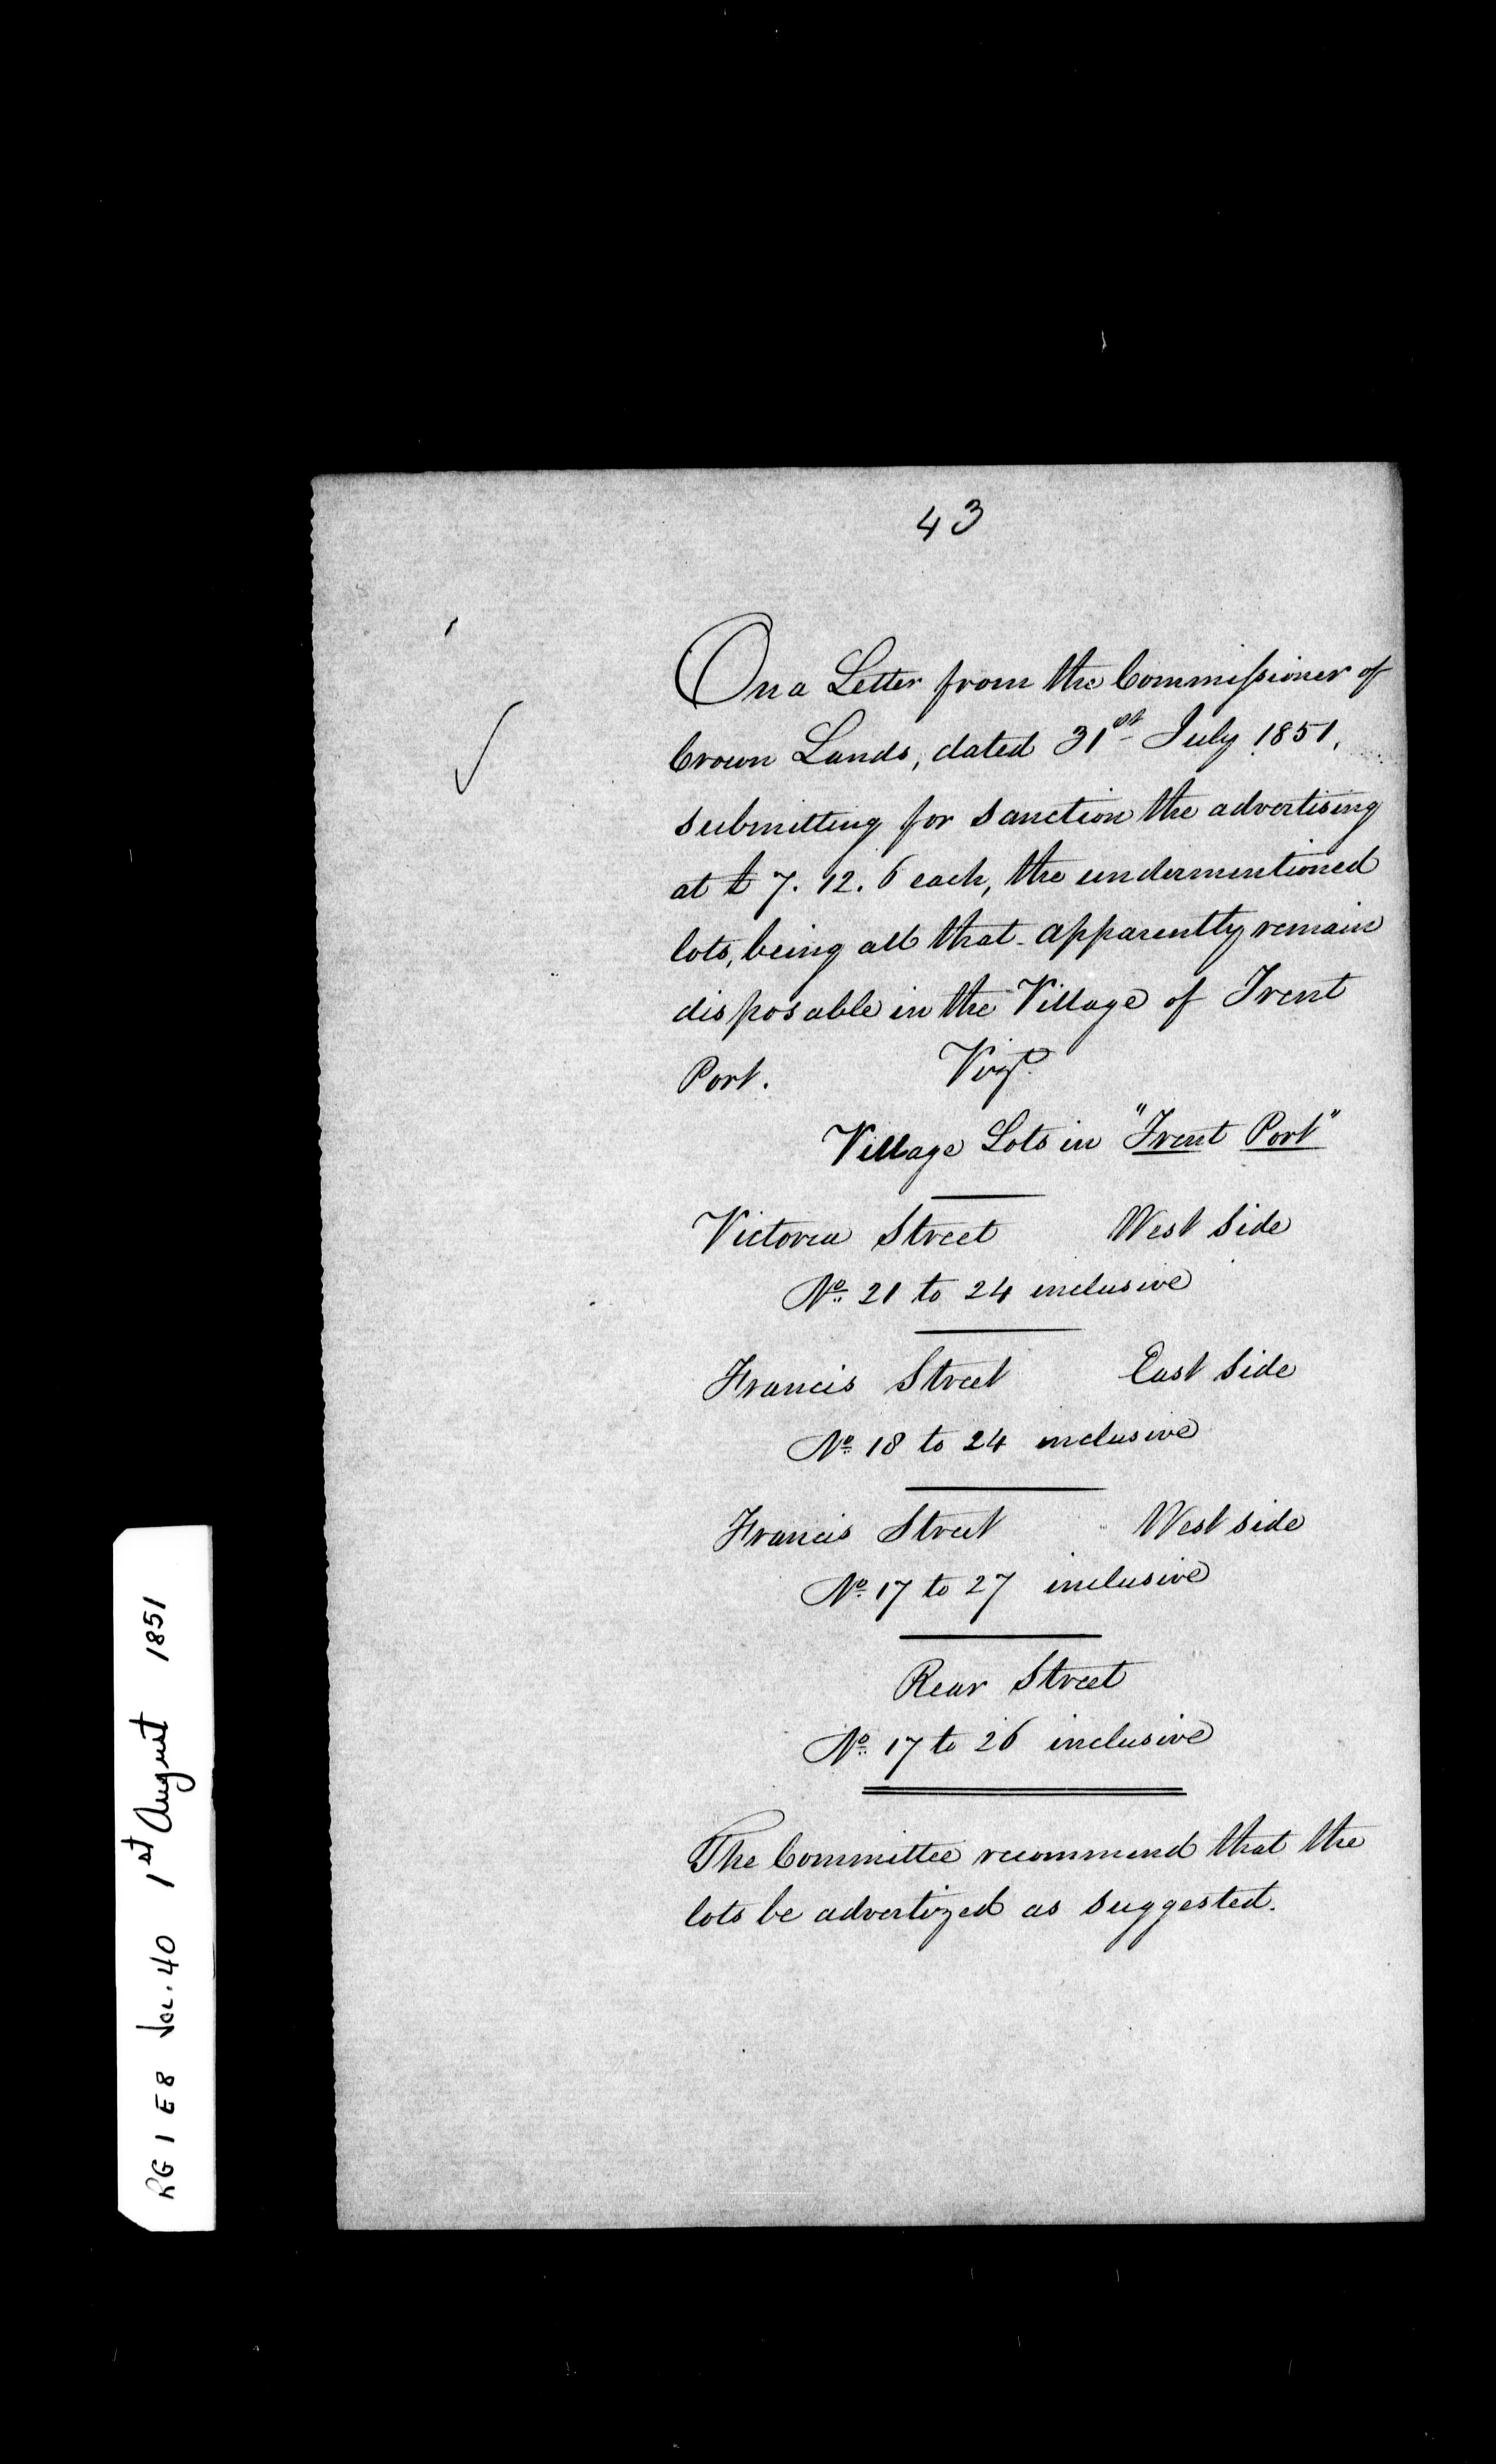 43
On a Letter from the Commissioner of
Crown Lands, dated 31st July 1851,
submitting for sanction the advertising
at £7. 12. 6 each, the undermentioned
lots, being all that apparently remain
disposable in the Village of Trent
Port. Vizt.
Village Lots in "Trent Port"
Victoria Street West Side
No. 21 to 24 inclusive
Francis Street East Side
No. 18 to 24 inclusive
Francis Street West side
No. 17 to 27 inclusive
Rear Street
No. 17 to 26 inclusive
The Committee recommend that the
lots be advertized as suggested.
RG 1 E8 Vol. 40 1st August 1851